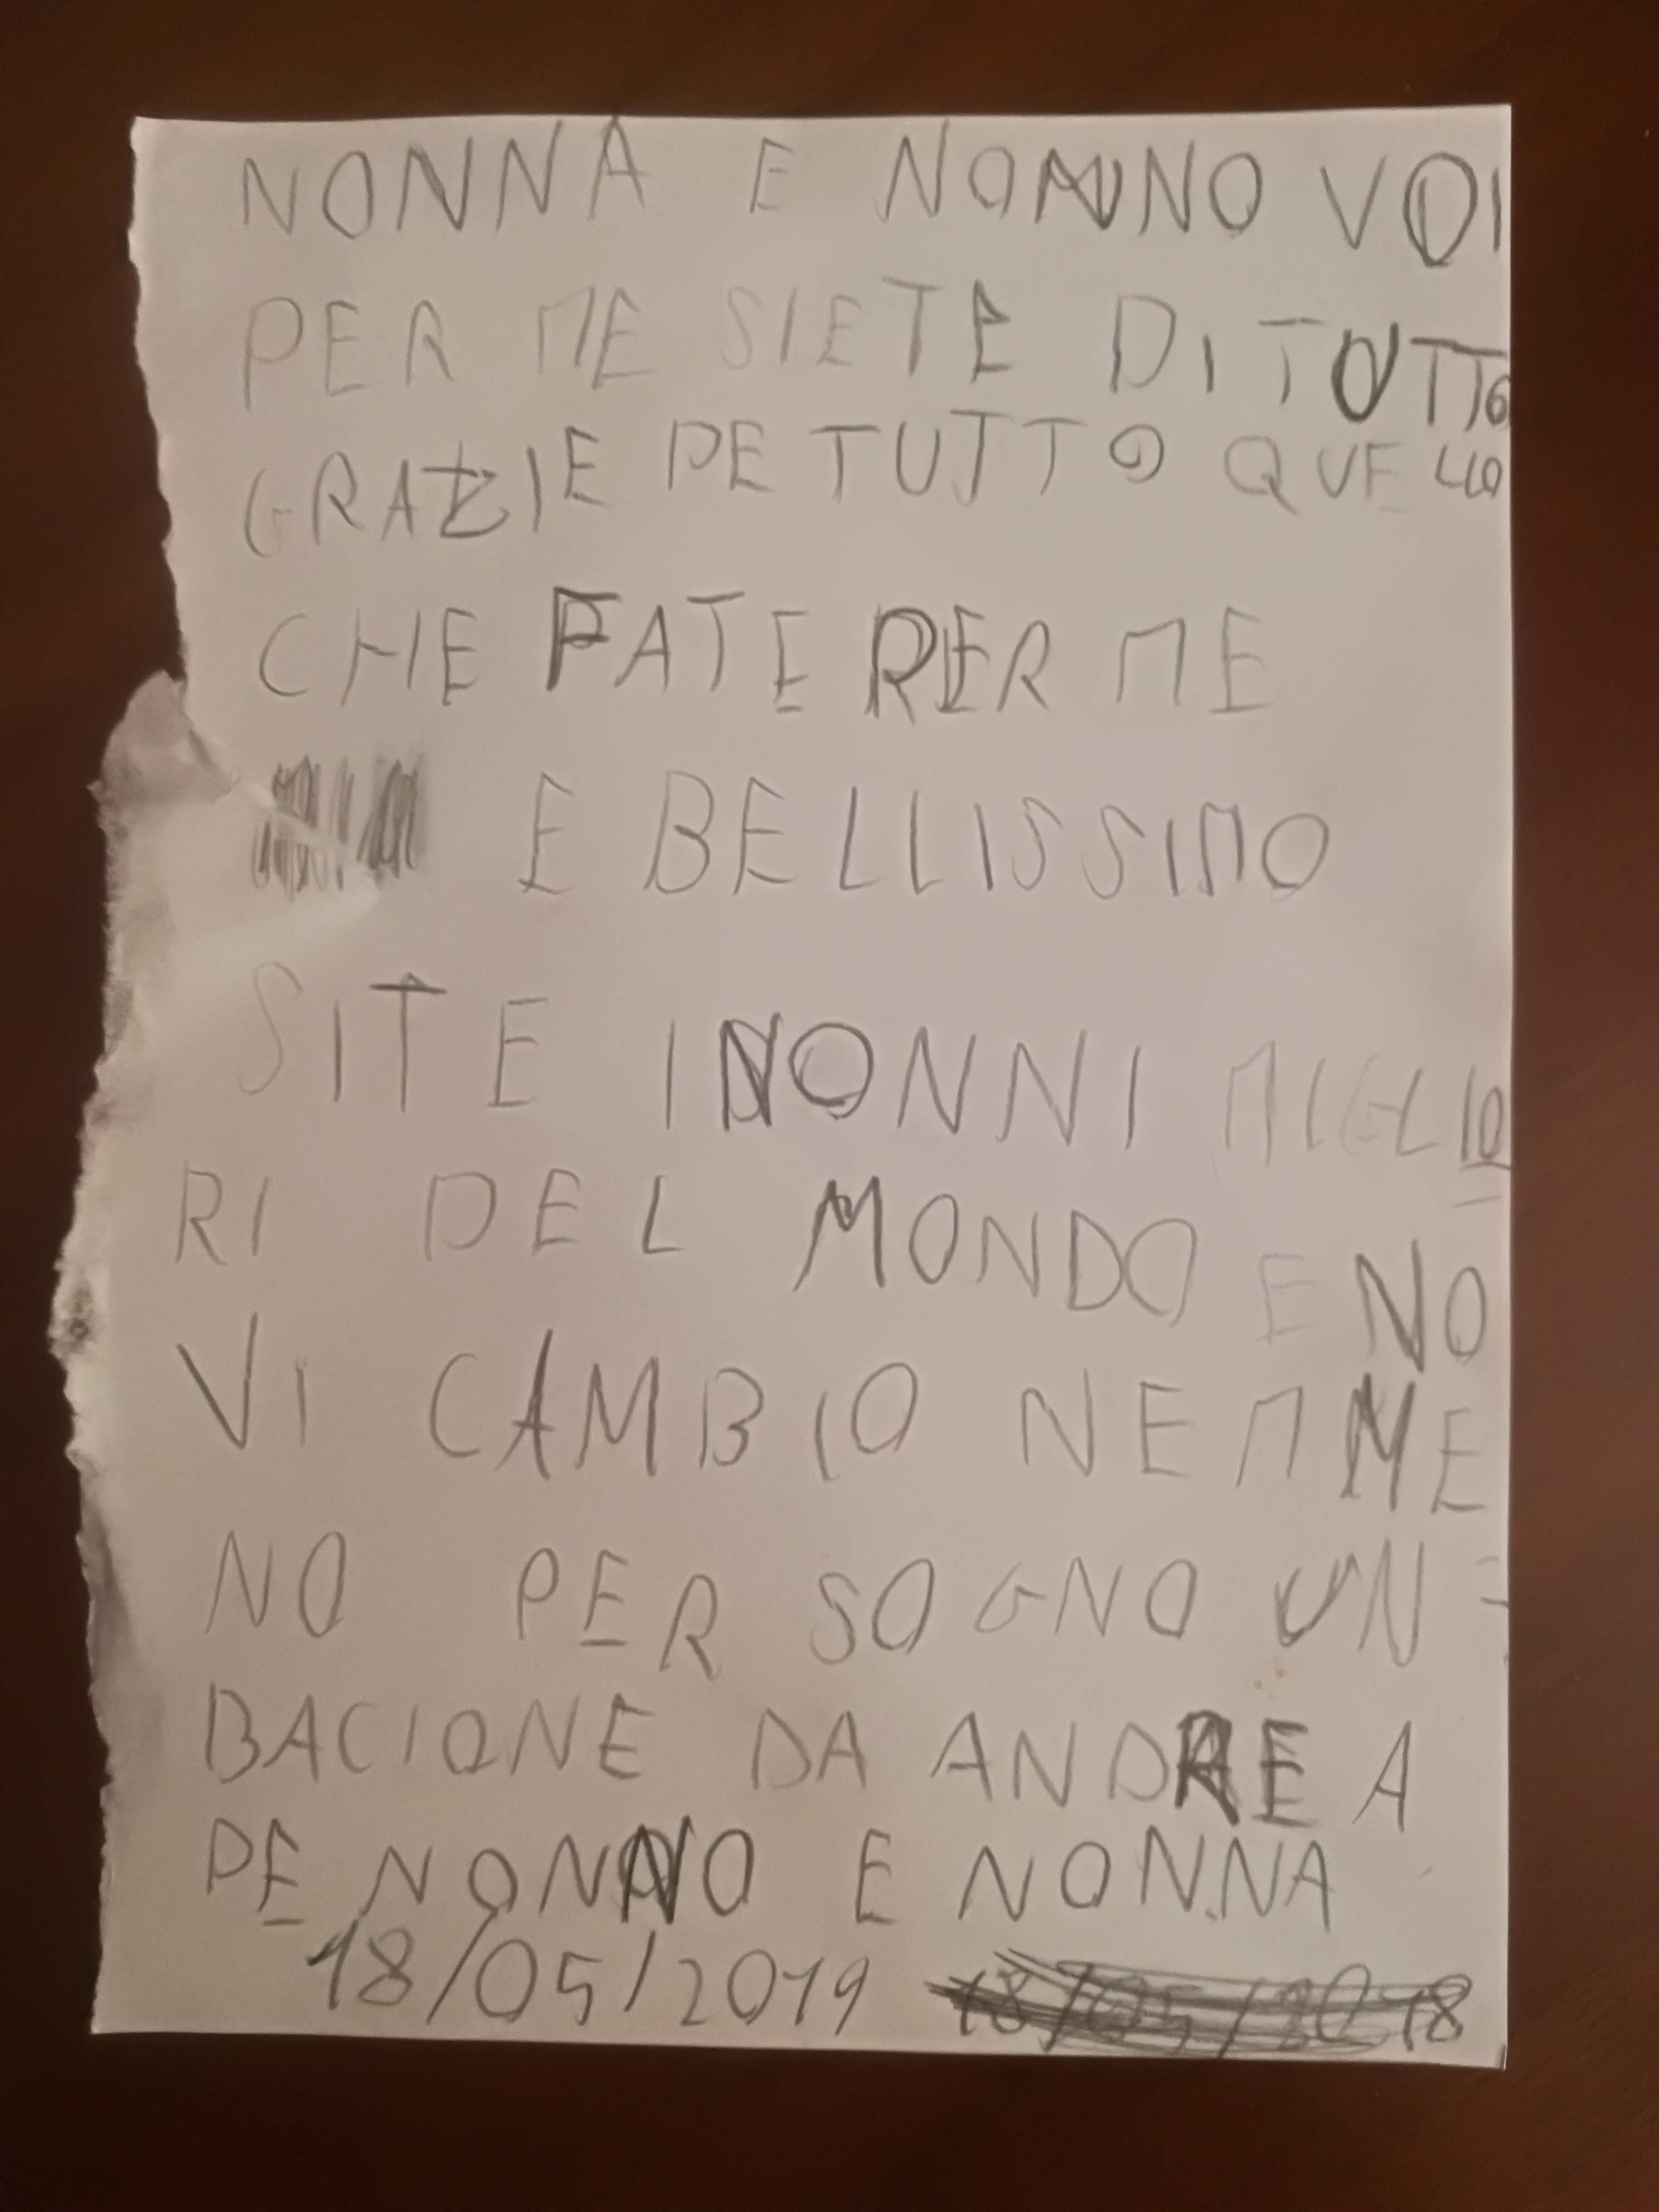 NONNA E NONNO VOI
PER ME SIETE DI TUTTO
GRAZIE PE TUTTO QUELLO
CHE FATE PER ME
E BELLISSIMO
SITE I NONNI MIGLIO
RI DEL MONDO E NO
VI CAMBIO NEMME
NO PER SOGNO UN
BACIONE DA ANDREA
PE NONNO E NONNA
18/05/2019 18/05/2018